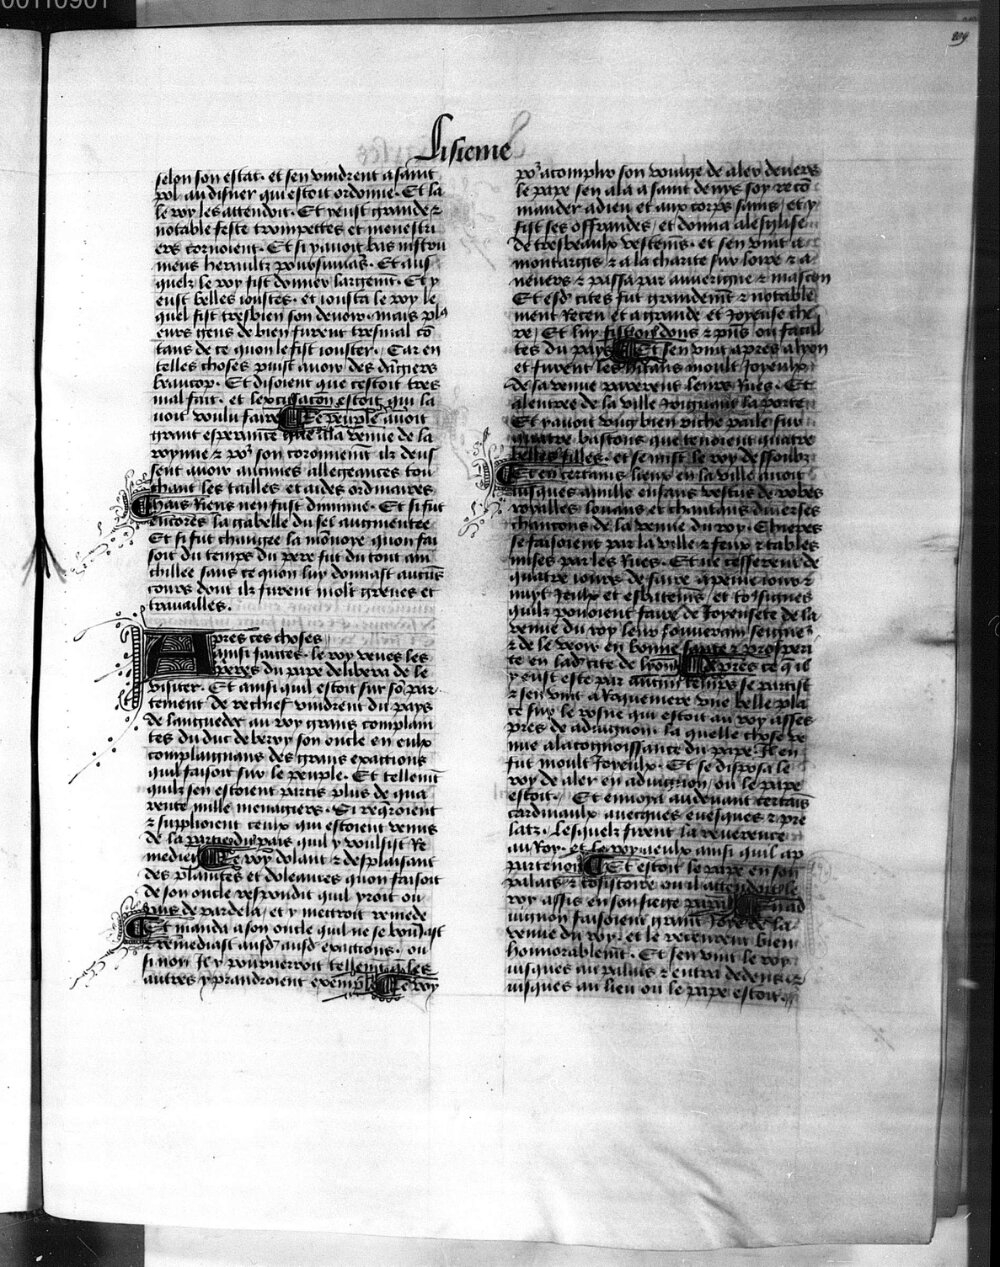 00110901
209
Lisieme
selon son estat. et sen vindrent a saint
pol au disner qui estoit ordonne. Et la
le roy les attendoit. Et y eust grande ⁊
notable feste trompettes et menestri
ers cornoient. Et si y auoit bas instru
mens heraultz poursuiuãs. Et aus
quelz le roy fist donner largemt. Et y
eust belles ioustes. et iousta le roy le
quel fist tresbien son deuoir. mais plꝰ
eurs gens de bien furent tresmal cõ
tans de ce quon le fist iouster. Car en
telles choses puist auoir des dãgiers
beaucop. Et disoient que cestoit tres
mal fait. et lexcusacõn estoit quil la
uoit voulu faire Le peuple auoit
grant esperance que a la venue de la
roynne et poꝰ son coronnemt ilz deus
sent auoir aucunes allegeances tou
chant les tailles et aides ordinaires
Mais Riens nen fust diminue. Et si fut
encores la gabelle du sel augmentee
Et si fut changee la mõnoye quon fai
soit du temps du pere fut du tout ani
chillee sans ce quon luy donnast aucũs
cours dont ilz furent molt greues et
trauailles.
Apres ces choses
ainsi faittes. le roy veues les
du pape delibera de le
visiter. Et ainsi quil estoit sur sõ par
tement de rechief vindrent du pays
de languedoc au roy grans complain
tes du duc de berry son oncle en eulx
complaignans des grans exactions
quil faisoit sur le peuple. Et tellemt
quilz sen estoient partis plus de qua
rente mille menagiers. Si reqroient
⁊ supplioient ceulx qui estoient venus
de la partie du pais quil y voulsist Re
medier Le roy dolant ⁊ desplaisant
des plaintes et doleances quon faisoit
de son oncle respondit quil yroit ou
pais de pardela. et y mectroit remede
Et manda a son oncle quil ne se bouiast
⁊ remediast ausd ausd exactions. ou
si non Il y pouruerroit tellemt q les
autres y prandroient exemple Le roy
poꝰ acomplir son voiage de aler deuers
le pape sen ala a saint denys soy recõ
mander adieu et aux corps sains. et y
fist ses offrandes. et donna a leglise
de tresbeaulx vestemẽs. et sen vint a
montargis ⁊ a la charite sur loire ⁊ a
neuers ⁊ passa par auuergne ⁊ mascon
Et esd cites fut grandemt ⁊ notable
ment Receu et a grande et Joyeuse che
re. Et luy fist on dons ⁊ pñs ou facul
tes du pays Et sen vint apres a lyon
et furent les hitans moult Joyeulx
de sa venue parerent leurs Rues. Et
a lentree de la ville Joignant la porte
Et y auoit vng bien riche paile sur
quatre bastons que tenoient quatre
belles filles. et se mist le roy dessoubz
Et en certains lieux en la ville auoit
iusques a mille enfans vestus de robes
royalles louans et chantans diuerses
chancons de la venue du roy.
se faisoient par la ville ⁊ feux ⁊ tables
mises par les Rues. Et ne cesserent de
quatre iours de faire a peine iours ⁊
nuyt Jeulx et esbatemẽs. et to signes
quilz pouoient faire de Joyeusete de la
venue du roy leur souuerain seigneꝰ
⁊ de le veoir en bonne sante ⁊ prosperi
te en lad cite de lyon Apres ce q il
y eust este par aucun temps se partist
⁊ sen vint a Roquemere vne belle pla
ce sur le rosne qui estoit au roy asses
pres de aduignon. la quelle chose ve
nue a la cognoissance du pape Il en
fut moult Joyeulx. Et se disposa le
roy de aler en aduignon. ou le pape
estoit. Et enuoya au deuant certais
cardinaulx auecques euesques ⁊ pre
latz. Lesquelz firent la reuerence
au Roy. et le roy a eulx ainsi quil ap
partenoit Et estoit le pape en son
palais ⁊ cõsistoire ou il attendoit le
roy assis en son siege papal
uignon faisoient grant Joye de la
venue du roy. et le receurent bien
honnorablemt. Et sen vint le roy
iusques au palais ⁊ entra dedens. ⁊
iusques au lieu ou le pape estoit.